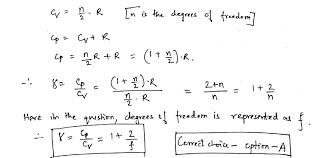 Cv = n/2 · R [n is the degrees of freedom]
Cp = Cv + R
Cp = n/2 R + R = (1 + n/2) · R.
∴ γ = Cp/Cv = (1 + n/2) · R / n/2 · R = 2+n/n = 1 + 2/n
Here in the question, degrees of freedom is represented as f.
∴ γ = Cp/Cv = 1 + 2/f
Correct choice - option - A